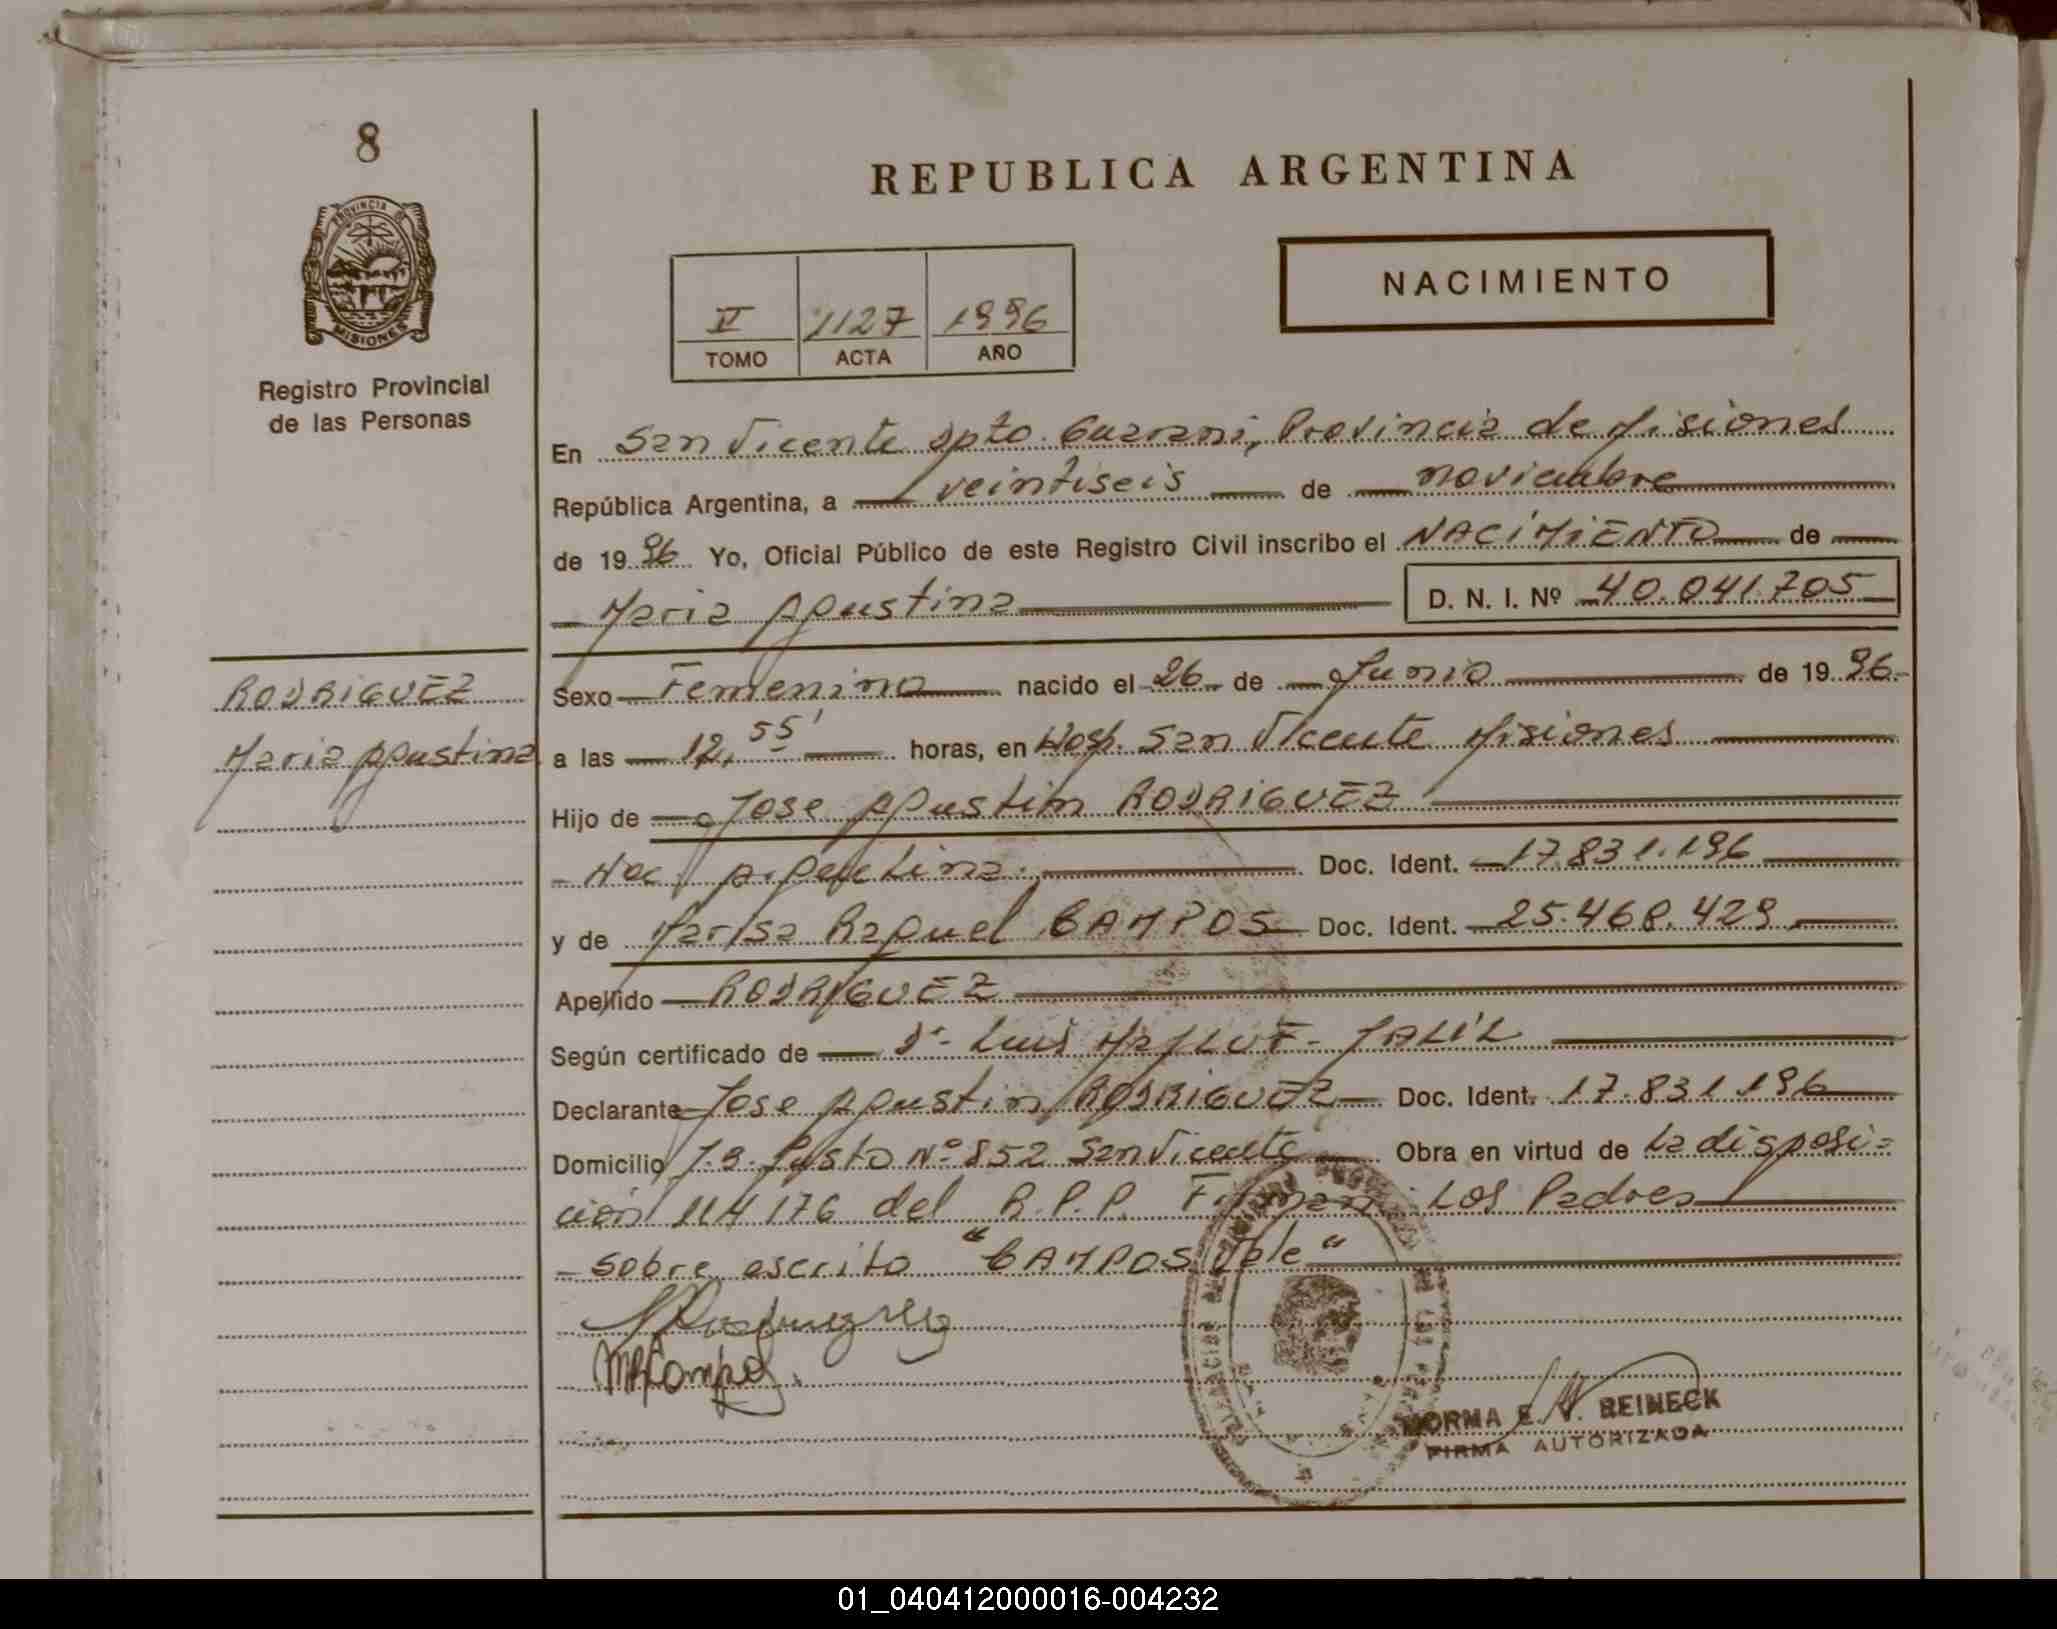 8
REPUBLICA ARGENTINA
PROVINCIA DE
MISIONES
Registro Provincial
de las Personas
NACIMIENTO
V 1127 1996
TOMO ACTA AÑO
En San Vicente Dpto. Guarani, Provincia de Misiones
República Argentina, a veintiseis de noviembre
de 1996 Yo, Oficial Público de este Registro Civil inscribo el NACIMIENTO de
Maria Agustina D. N. I. Nº 40.041.705
RODRIGUEZ
Maria Agustina
Sexo Femenino nacido el 26 de Junio de 1996
a las 12,55' horas, en Hosp. San Vicente Misiones
Hijo de Jose Agustin RODRIGUEZ
Nac. Argentina. Doc. Ident. 17.831.196
y de Marisa Raquel CAMPOS Doc. Ident. 25.468.429
Apellido RODRIGUEZ
Según certificado de Dr. Luis JALIL
Declarante Jose Agustin RODRIGUEZ Doc. Ident. 17.831.196
Domicilio J.B. Justo Nº 852 San Vicente Obra en virtud de la disposi=
ción 114176 del R.P.P. Firman: Los Padres
Sobre escrito "CAMPOS Vale"
MRCampos.
NORMA E. V. REINECK
FIRMA AUTORIZADA
01_040412000016-004232